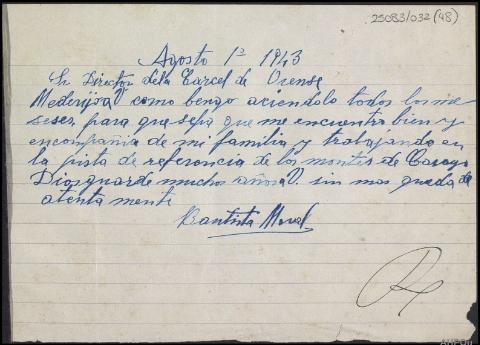 25083/032 (48)
Agosto 1º 1943
Sr Director dela Carcel de Orense
Mederijo a V como bengo aciendolo todos los me
seses, para que sepa que me encuentro bien y
encompañia de mi familia y trabajando en
la pista de referencia de los montes de
Dios guarde muchos años a V. sin mas queda de
atenta mente
Bautista